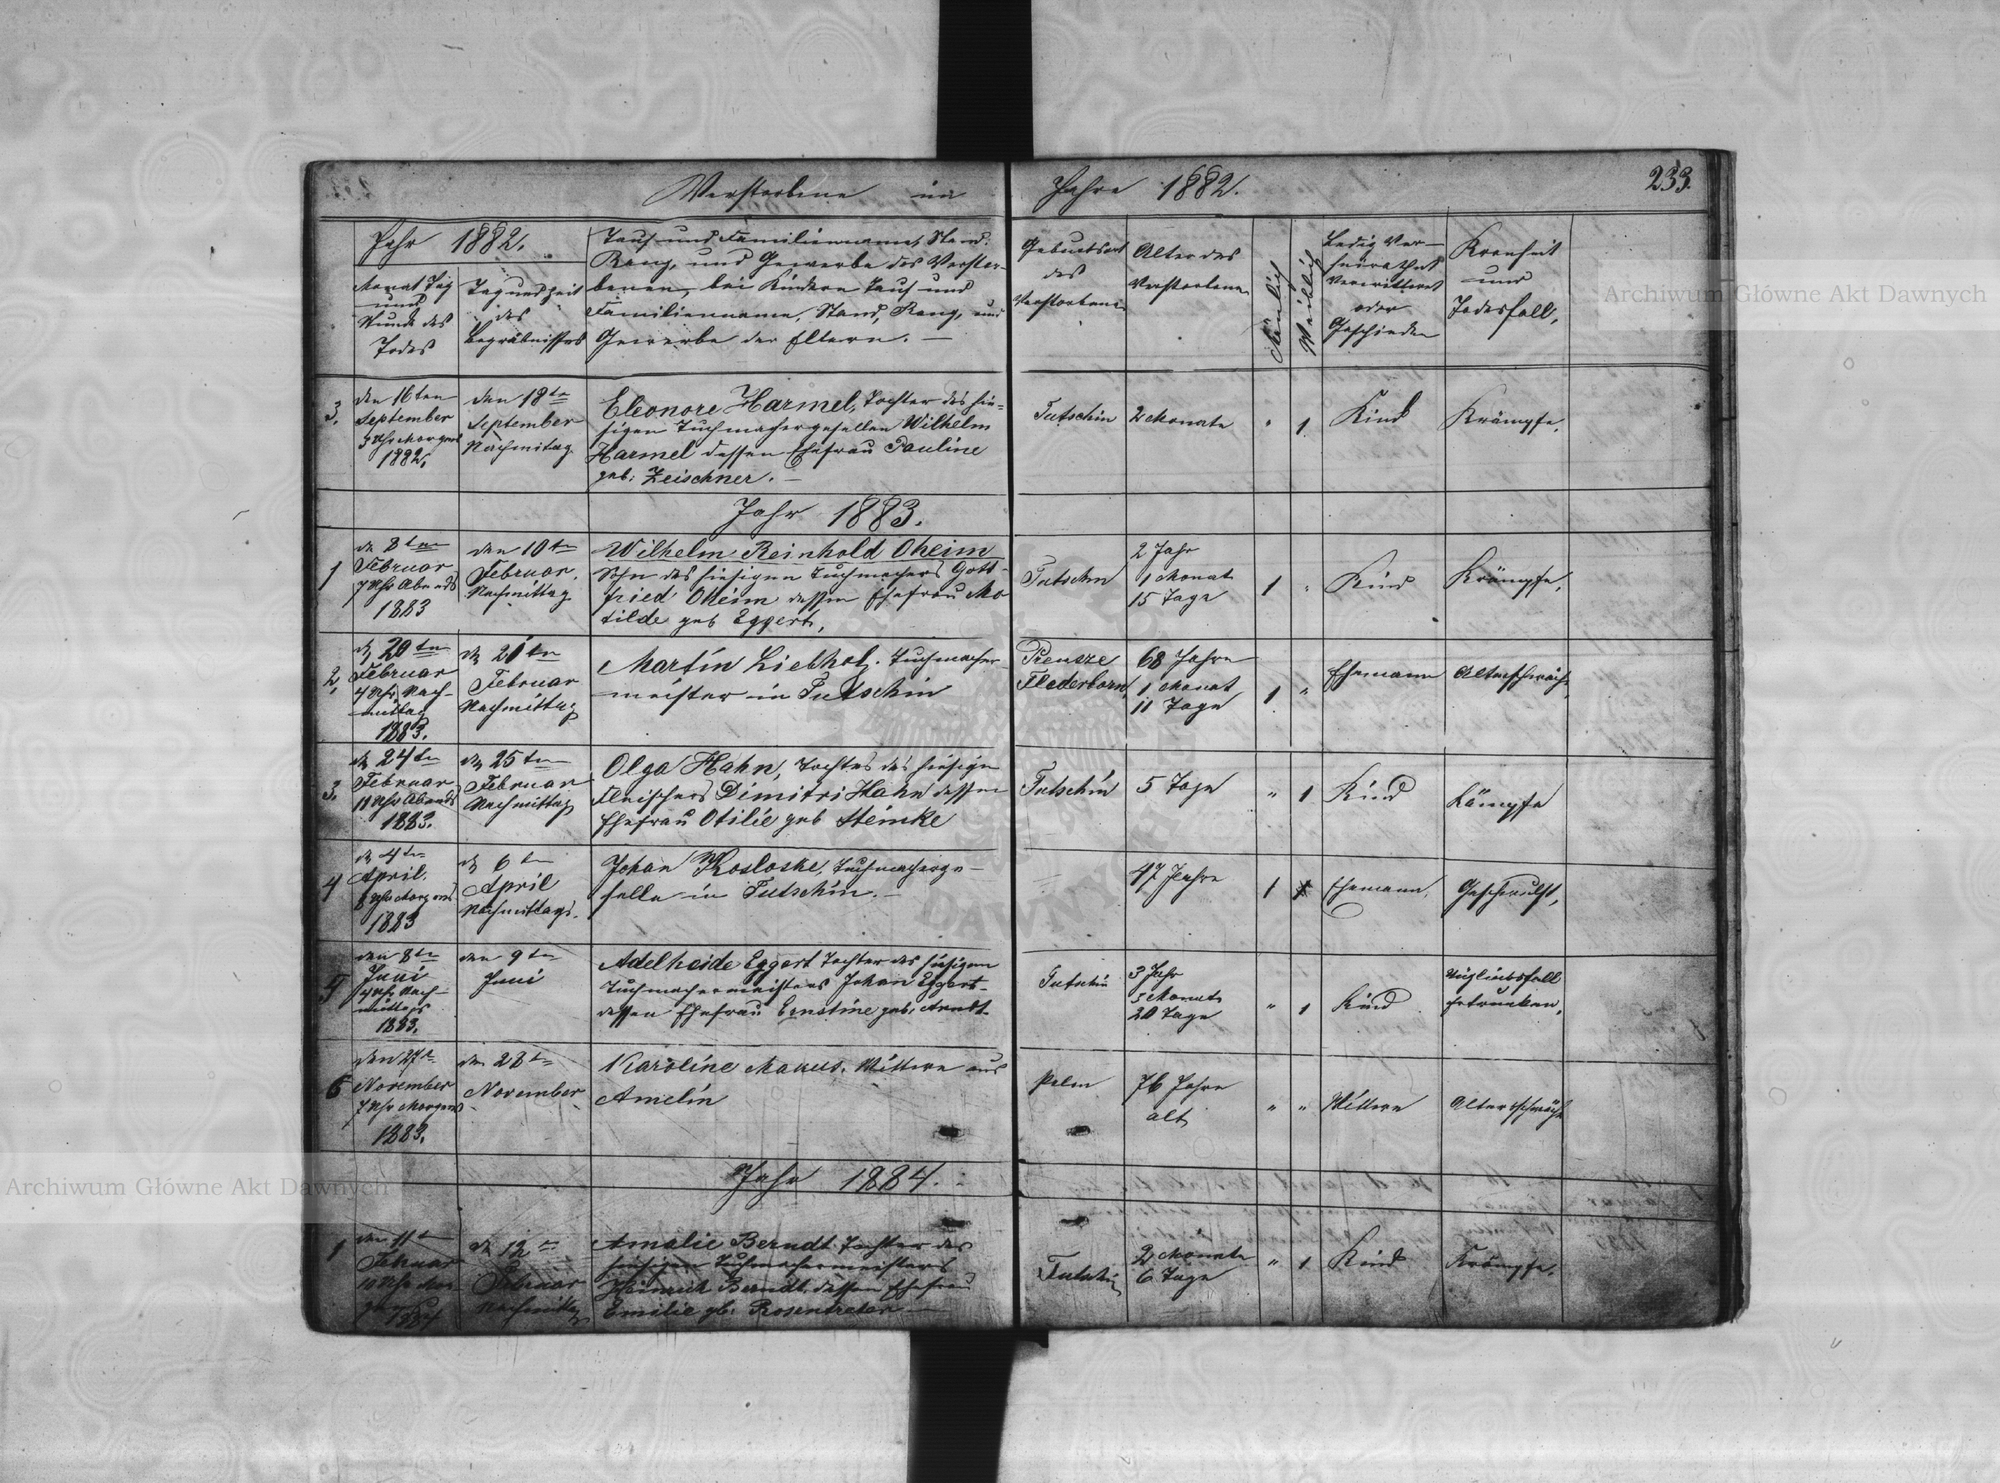 Verstorbene im Jahre 1882.
233.
Jahr 1882.
Monat Tag
und
Stunde des
Todes
Tag und Zeit
des
Begräbnisses
Tauf und Familienname, Stand.
Rang, und Gewerbe des Verstor-
benen, bei Kindern Tauf und
Familienname, Stand, Rang, und
Gewerbe der Eltern. —
Geburtsort
des
Verstorbenen
Alter des
Verstorbenen
Mänlich
Weiblich
Ledig Ver-
heirathet
Verwittwet
oder
Geschieden
Krankheit
und
Todesfall,
3.
den 16ten
September
Uhr Morgens
1882.
den 18ten
September
Nachmitag.
Eleonore Harmel, Tochter des hie-
sigen Tuchmachergesellen Wilhelm
Harmel dessen Ehefrau Pauline
geb. Zeischner. —
Tutschin
2 Monate
" 1.
Kind
Krämpfe,
Jahr 1883.
1
den 8ten
Februar
7 Uhr Abends
1883
den 10ten
Februar.
Nachmittag
Wilhelm Reinhold Oheim
Sohn des hiesigen Tuchmachers Gott-
fried Oheim dessen Ehefrau Ma
tilde geb Eggert,
Tutschin
2 Jahr
1 Monat
15 Tage
1 "
Kind
Krämpfe,
2,
den 20ten
Februar
4 Uhr Nach-
mittag
1883.
den 21ten
Februar
Nachmittag
Martin Liebholz. Tuchmacher
meister in Tutschin
Preusze
Flederborn,
68 Jahre
1 Monat
11 Tage
1 "
Ehemann
Altersschwäche
3.
den 24ten
Februar
11 Uhr Abends
1883.
den 25ten
Februar
Nachmittag
Olga Hahn, Tochter des hiesigen
Fleischers Dimitri Hahn dessen
Ehefrau Otilie geb Steinke
Tutschin
5 Tage
" 1
Kind
Kämpfe
4
den 4ten
April.
8 Uhr Morgens
1883
den 6ten
April
Nachmittags.
Johan Kosloske, Tuchmacherge-
selle in Tutschin. —
47 Jahre
1
Ehemann.
Geschwulst,
5
den 8ten
Juni
4 Uhr Nach-
mittags
1883.
den 9ten
Juni
Adelheide Eggert Tochter des hiesigen
Tuchmachermeisters Johan Eggert
dessen Ehefrau Ernstine geb. Arndt.
Tutschin
3 Jahr
5 Monate
20 Tage
" 1
Kind
Unglücksfall
ertrunken,
6
den 27t
November
7 Uhr Morgens
1883.
den 28ten
November
Karoline Makus. Wittwe aus
Amelin
Polen
76 Jahre
alt
" "
Wittwe
Altersschwäche
Jahr 1884.
1
den 11ten
Februar
10 Uhr Mor
gens
1884
den 12ten
Februar
Nachmittag
Amalie Berndt Tochter des
hiesigen Tuchmachermeisters
Heinrich Berndt, dessen Ehefrau
Emilie gb. Rosentreter —
Tutschin
2 Monate
6 Tage
" 1
Kind
Krämpfe.
Archiwum Główne Akt Dawnych
Archiwum Główne Akt Dawnych